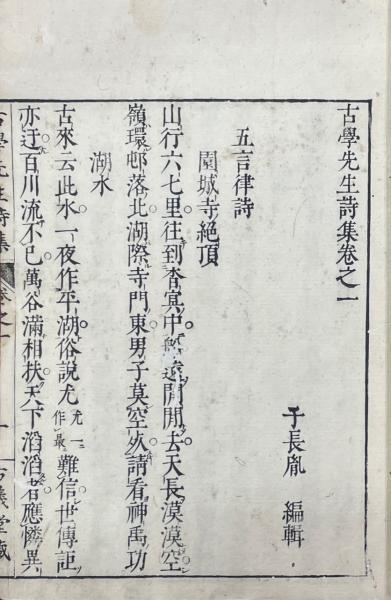 古學先生詩集卷之一
子長胤 編輯
五言律詩
園城寺絕頂
山行六七里往到杳冥中船遠閒閒去天長漠漠空
嶺環邨落北湖際寺門東男子莫空請看神禹功
湖水
古來云此水一夜作平湖俗說尤尤一作最難信世傳詎
亦迂百川流不已萬谷滿相扶天下滔滔者應憐異
古學先生詩集 卷之一 一 古義堂藏